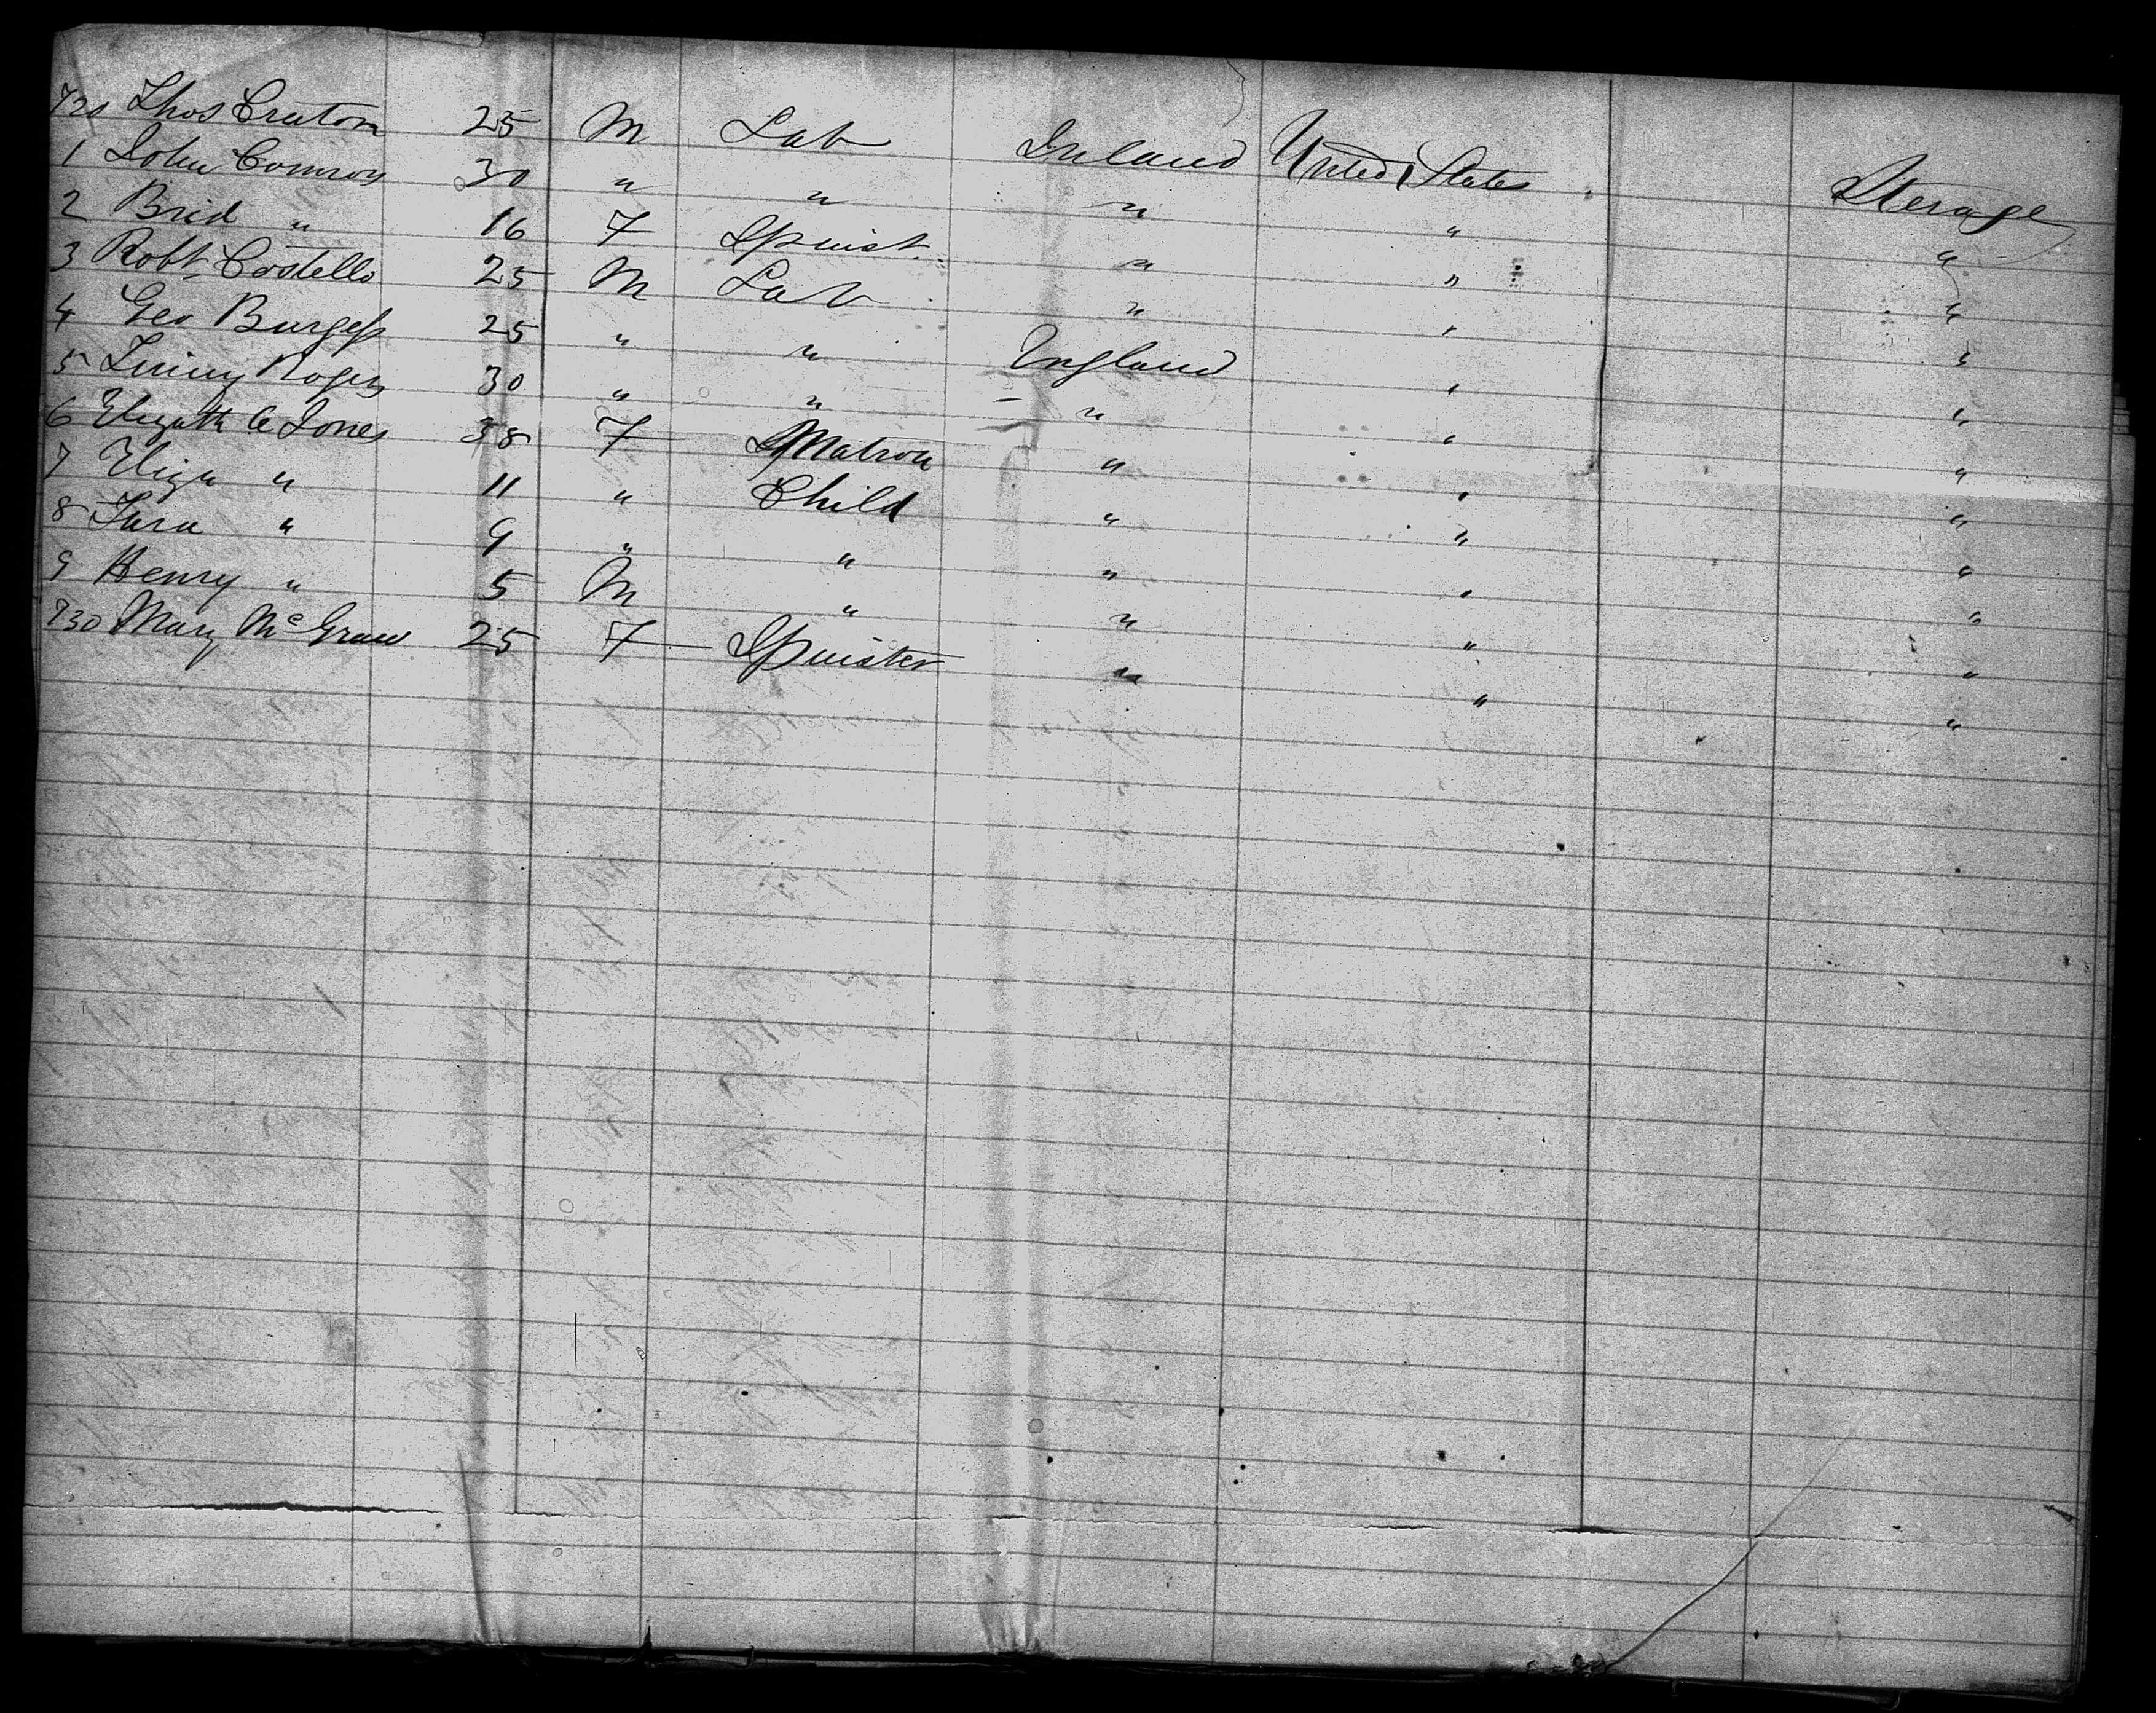 720 Thos Craton 25 M Lab Ireland United States Sterage
1 John Conroy 30 " " " " "
2 Brid " 16 F Spinst. " " "
3 Robt Costello 25 M Lab " " "
4 Geo Burgess 25 " " England " "
5 Rogers 30 " " " " "
6 Elizath C Jones 38 F Matron " " "
7 Eliza " 11 " Child " " "
8 Sara " 9 " " " " "
9 Henry " 5 M " " " "
730 Mary McGraw 25 F Spinster " " "